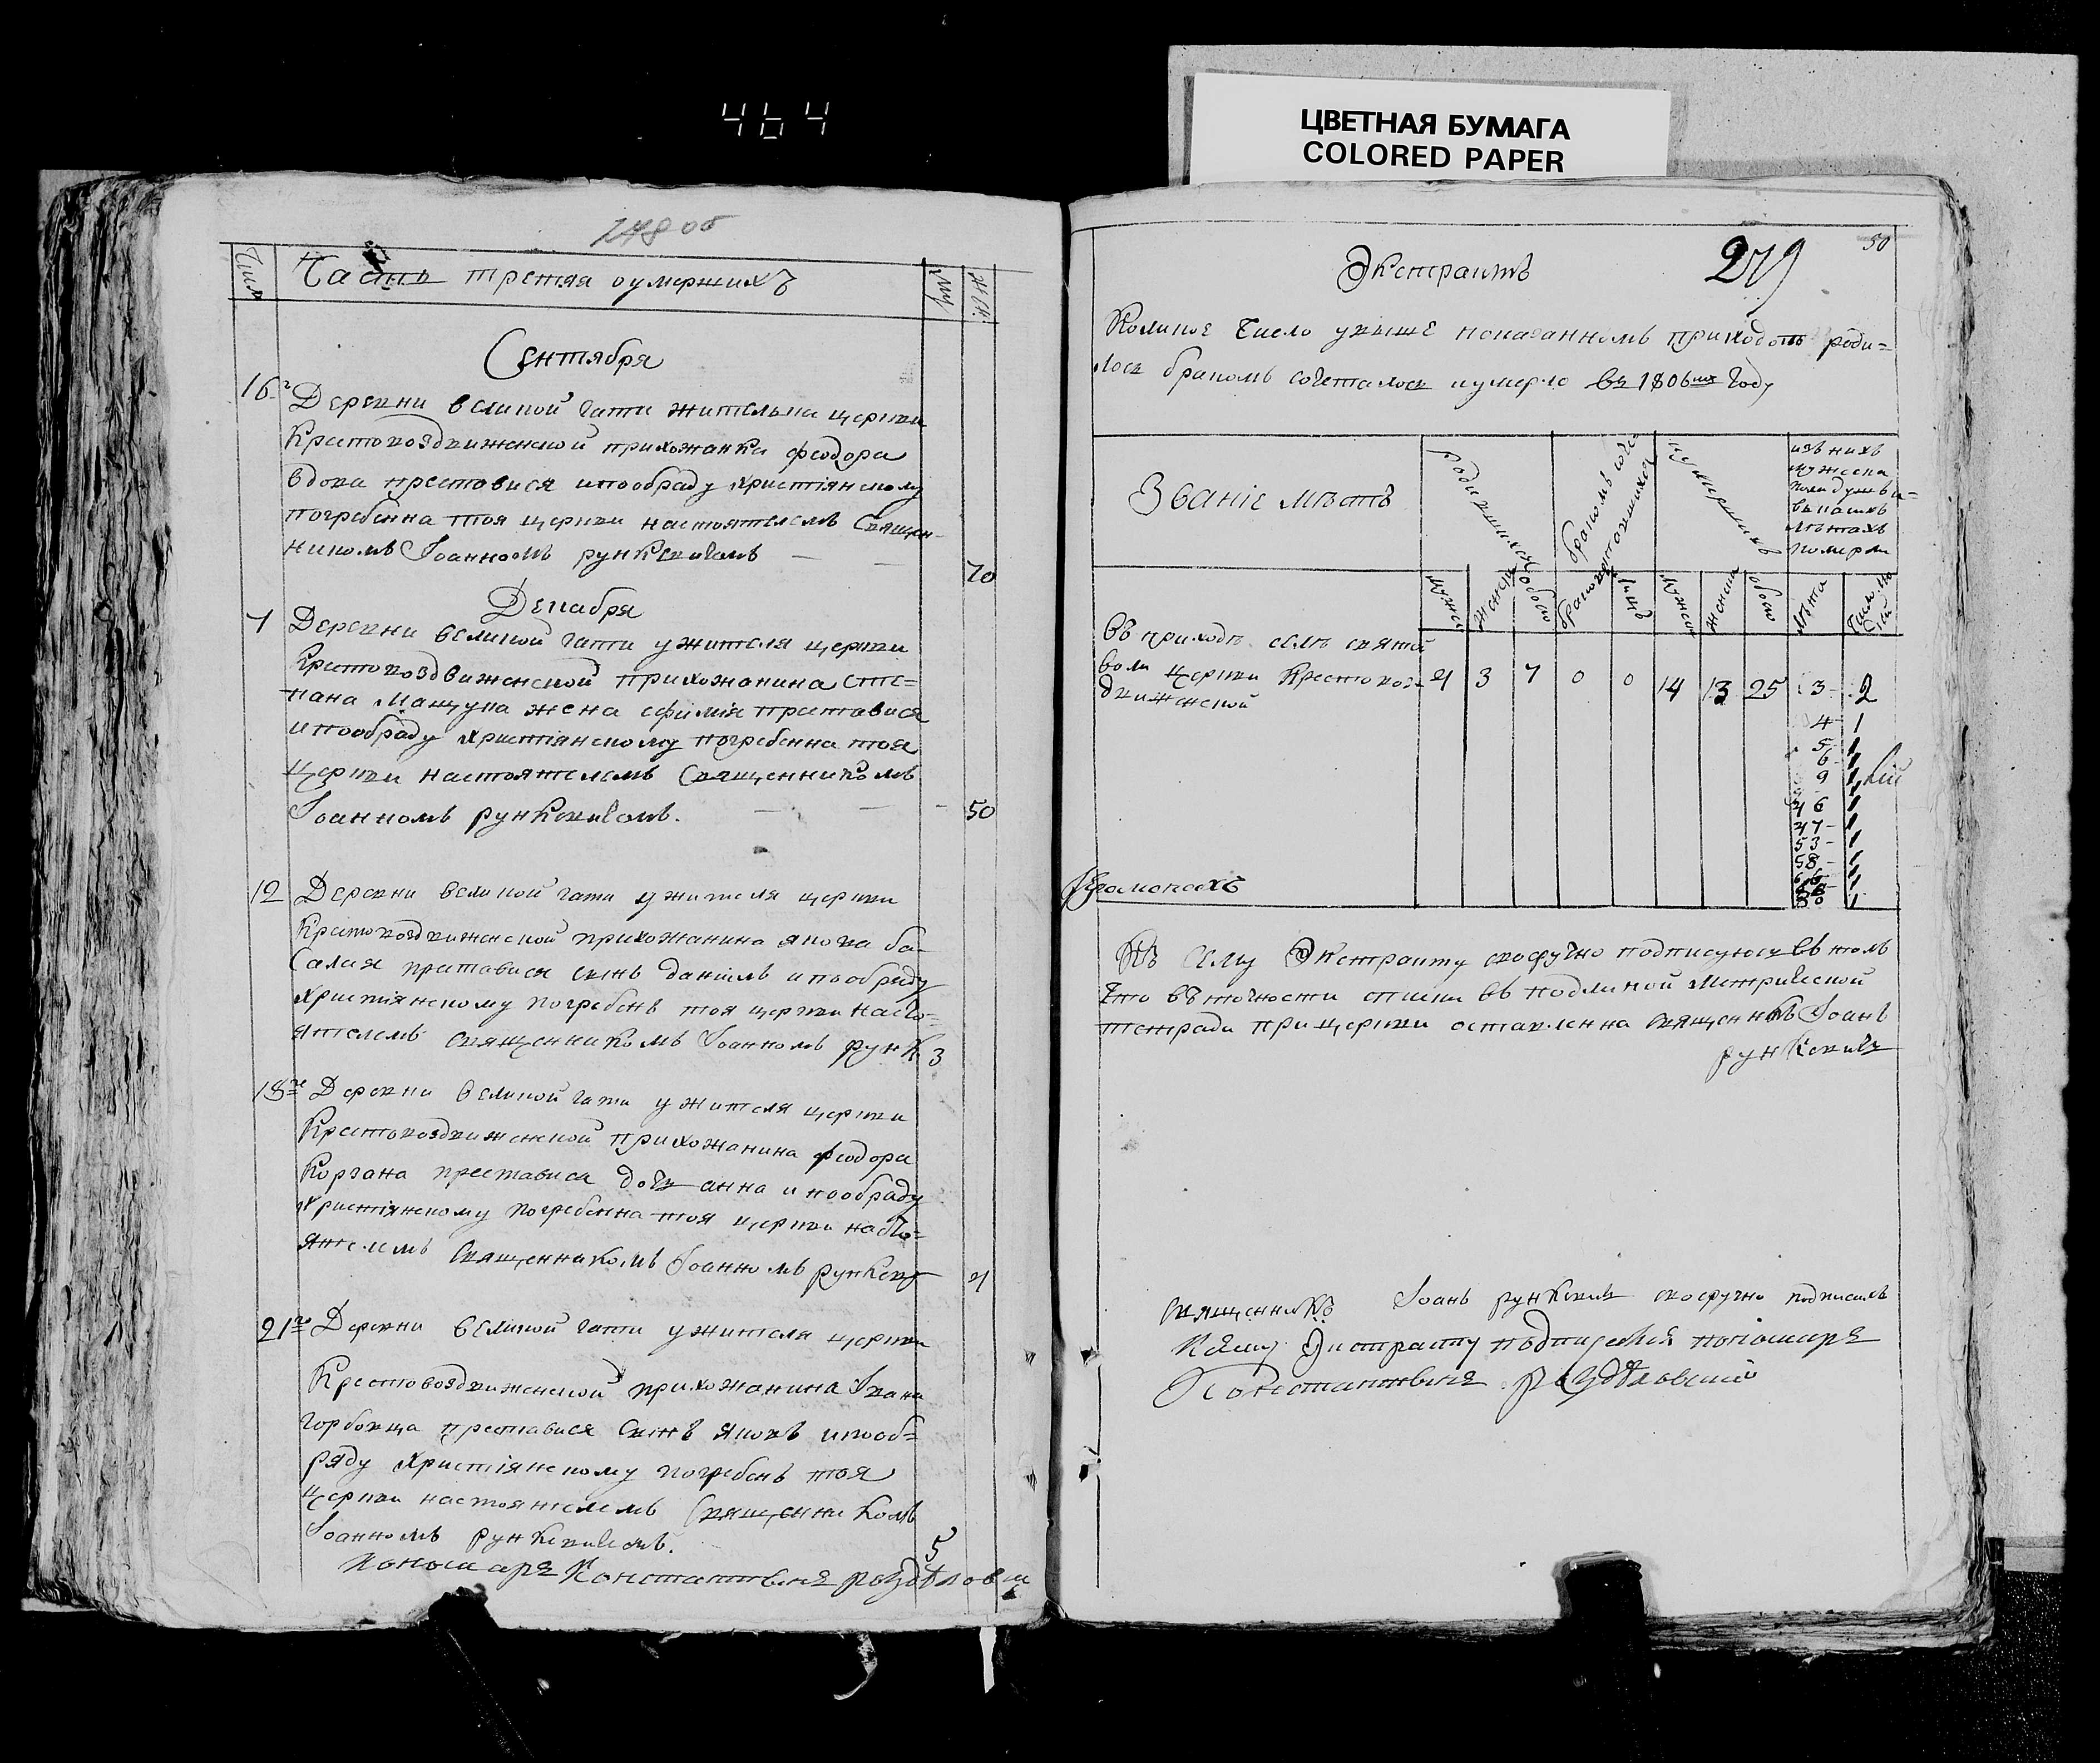 464
ЦВЕТНАЯ БУМАГА
COLORED PAPER
278 об
Число
Часть третяя оумершихъ
Муж
Жен
Сентября
16г Деревни великой гати жителька церкви
Крестовоздвиженской прихожанка феодора
вдова преставися ипообряду христіянскому
погребенна тоя церкви настоятелемъ Священ-
никомъ Іоанномъ рункевичомъ —
70
Декабря
7 Деревни великой гати ужителя церкви
Крестовоздвиженской прихожанина сте=
пана Мацука жена ефимія преставися
ипообряду христіянскому погребенна тоя
Церкви настоятелемъ Священникомъ
Іоанномъ рункевичомъ.
50
12 Деревни великой гати ужителя церкви
Крестовоздвиженской прихожанина якова ба-
салая преставися синъ даніилъ ипообряду
христіянскому погребенъ тоя церкви насто=
ятелемъ священникомъ Іоанномъ рунк 3
18го Деревни великой гати ужителя церкви
Крестовоздвиженской прихожанина феодора
Коргана преставися дочь анна ипообряду
христіянскому погребенна тоя церкви насто=
ятелемъ Священникомъ Іоанномъ рункев
4
21го Деревни великой гати ужителя церкви
Крестовоздвиженской прихожанина Ивана
горбовца преставися синъ яковъ ипооб=
ряду христіянскому погребенъ тоя
Церкви настоятелемъ Священникомъ
Іоанномъ рункевичомъ.
5
Паномарь Константинъ
50
Экстрактъ
279
Коликое Число увыше показанномъ приходѣ роди=
лося бракомъ сочеталося иумерло въ 1806мъ Году
Званіе мѣстъ
родившихся
бракомъ сочетавшихся
иумершихъ
изъ нихъ
мужеска
полу душъ и=
въ какихъ
лѣтахъ
померли
мужеск
женска
обоего
браковъ
душъ
мужеск
женска
обоего
лѣта
Въ приходѣ селѣ святой
воли Церкви Крестовоз-
движенской
4 3 7 0 0 14 13 25 3- 2
4- 1
5- 1
6- 1
9 1
46 1
47- 1
53- 1
58- 1
80 1
Къ Сему Экстракту своеручно подписуюсь въ томъ
Что въ точности списки въ подлиной Метрической
тетради при церкви оставленна Священникъ Іоанъ
рункевичъ
Священникъ Іоанъ рункевичъ своеручно подписалъ
Ксему Экстракту подписался
Константинъ